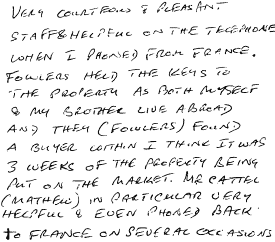 VERY COURTEOUS & PLEASANT
STAFF & HELPFUL ON THE TELEPHONE
WHEN I PHONED FROM FRANCE.
FOWLERS HELD THE KEYS TO
THE PROPERTY AS BOTH MYSELF
& MY BROTHER LIVE ABROAD
AND THEY (FOWLERS) FOUND
A BUYER WITHIN I THINK IT WAS
3 WEEKS OF THE PROPERTY BEING
PUT ON THE MARKET. MR CATTEL
(MATHEW) IN PARTICULAR VERY
HELPFUL & EVEN PHONED BACK
TO FRANCE ON SEVERAL OCCASIONS